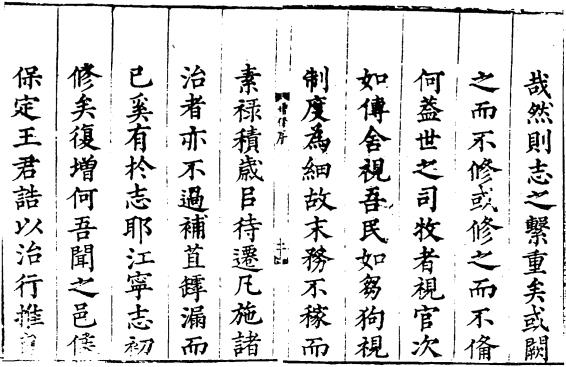 哉然則志之繫重矣或闕
之而不修或修之而不俻
何葢世之司牧者視官次
如傳舍視吾民如芻狗視
制度為細故末務不稼而
素祿積歲㠯待遷凡施諸
治者亦不過補苴罅漏而
已奚有於志耶江寧志初
修矣復增何吾聞之邑侯
保定王君誥以治行推